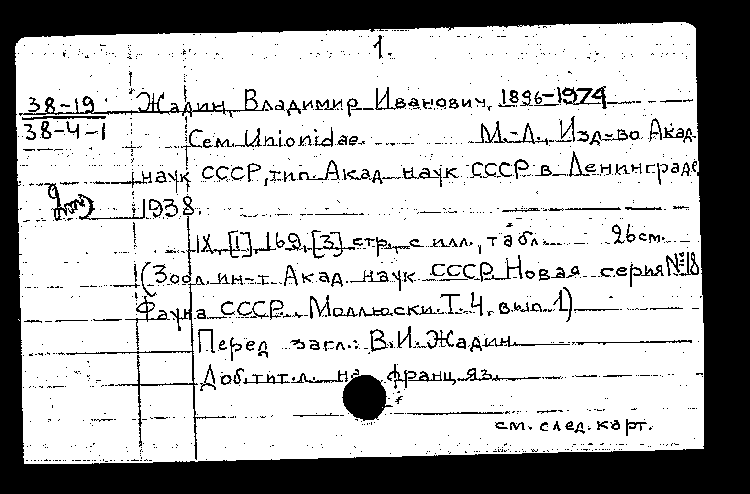 1.
38-19 Жадин, Владимир Иванович, 1896-1974
38-4-1 Сем. Unionidae. М.-Л., Изд-во Акад.
наук СССР, тип. Акад. наук СССР в Ленинграде,
1938.
IX, [1], 169, [3] стр., с илл., табл. 26 см.
(Зоол. ин-т Акад. наук СССР. Новая серия №18
Фауна СССР. Моллюски. Т. 4, вып. 1)
Перед загл.: В.И. Жадин.
Доб. тит. л. на франц. яз.
см. след. карт.